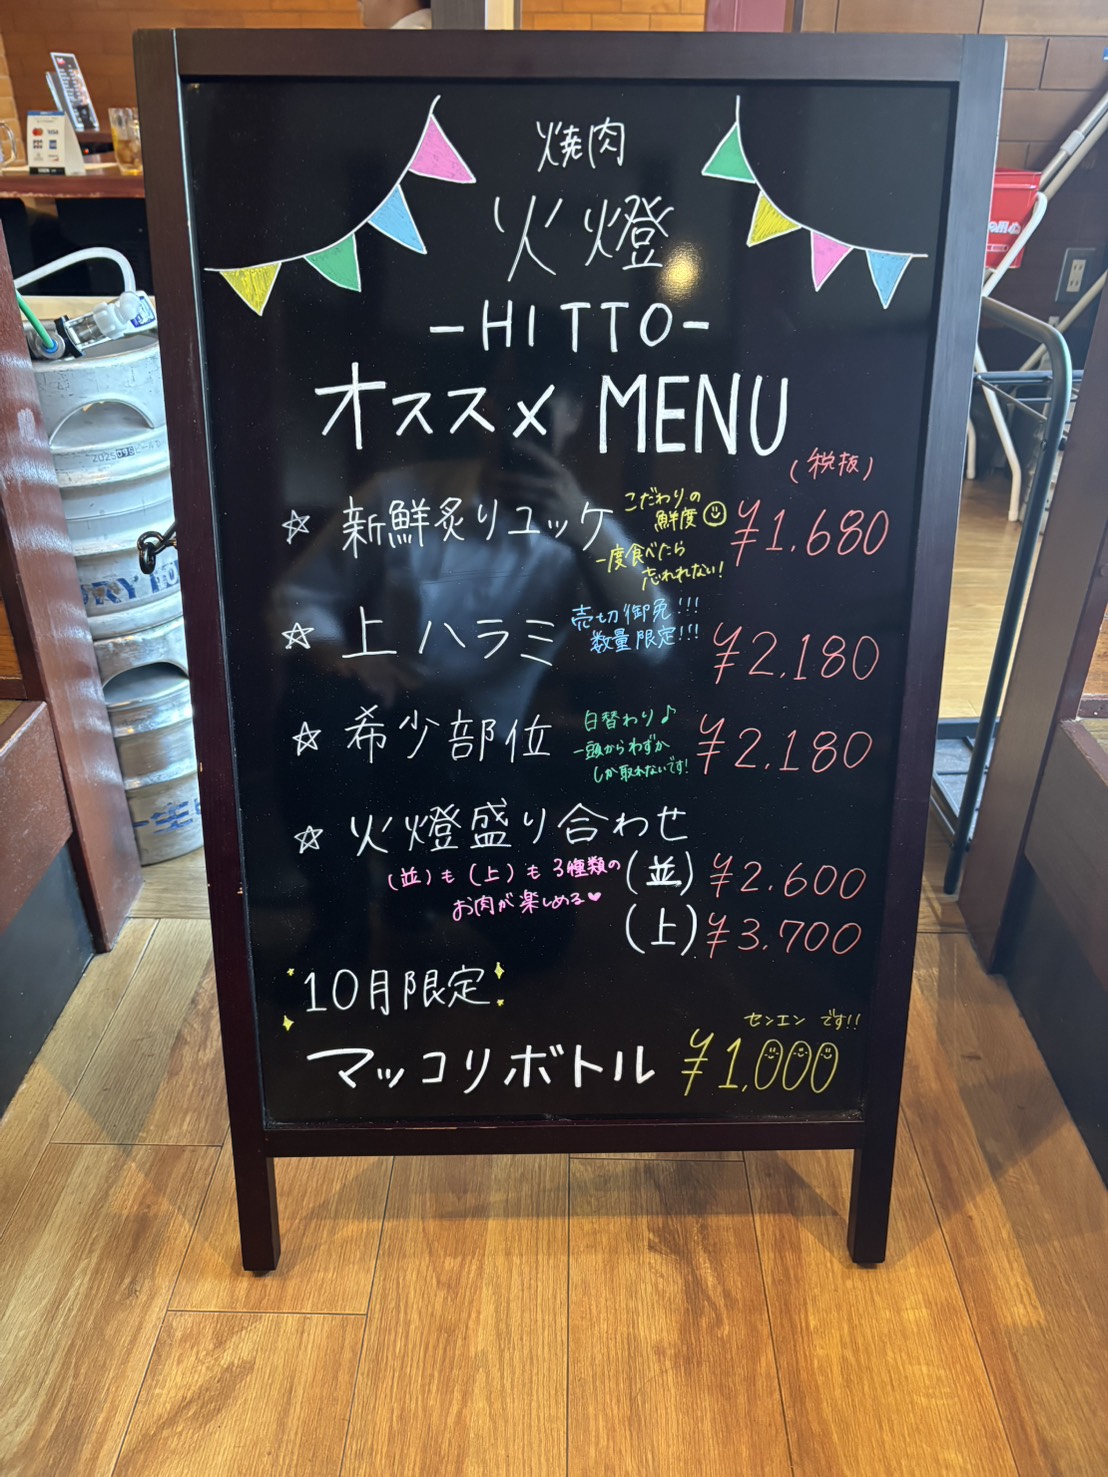 焼肉
火燈
-HITTO-
オススメ MENU
(税抜)
☆ 新鮮炙りユッケ こだわりの鮮度 ¥1.680
一度食べたら
忘れれない!
☆ 上ハラミ 売切御免!!!
数量限定!!! ¥2.180
☆ 希少部位 日替わり♪
一頭からわずか
しか取れないです! ¥2.180
☆ 火燈盛り合わせ
(並)も(上)も3種類の
お肉が楽しめる♥
(並) ¥2.600
(上) ¥3.700
10月限定
センエン です!!
マッコリボトル ¥1.000
VISA
2025